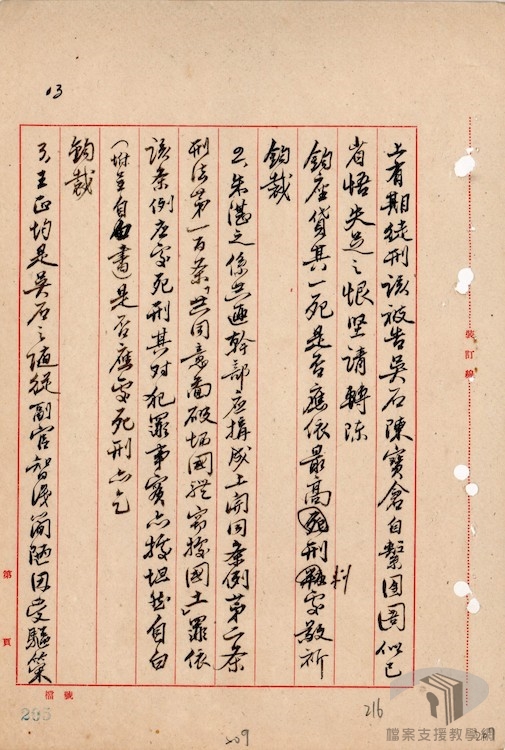 上有期徒刑該被告吳石陳寶倉自繫囹圄似已
省悟失足之恨坚請轉陈
鈞座貸其一死是否應依最高死刑科處敬祈
鈞裁
2、朱湛之係共匪幹部應構成上開同条例第二条
刑法第一百条「共同意图破坏國體竊據國土」罪依
該条例应處死刑其对犯罪事实亦據坦然自白
(附呈自白書)是否應處死刑亦乞
鈞裁
3、王正均是吳石之随從副官智淺簡陋因受驅策
裝訂線
第 頁
檔號
13
205
216
209
檔案支援教學網